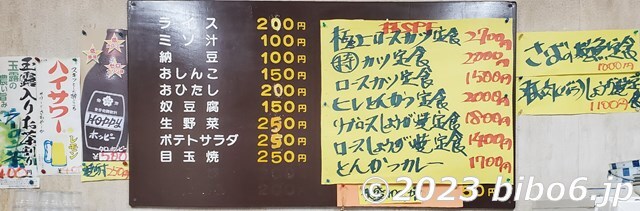 玉露入りお茶割り
玉露の濃い旨み
400円
ハイサワー
レモン
Hoppy
ホッピー
¥580
250円
ライス 200円
ミソ汁 100円
納豆 100円
おしんこ 150円
おひたし 200円
奴豆腐 150円
生野菜 250円
ポテトサラダ 250円
目玉焼 250円
極上ロースカツ定食 2700円
特カツ定食 2000円
ロースカツ定食 1500円
ヒレとんかつ定食 2000円
リブロースしょうが焼定食 1800円
ロースしょうが焼定食 1400円
とんかつカレー 1700円
さばの塩焼定食
1000円
しょうが焼定食
1100円
50円
©2023 bibo6.jp